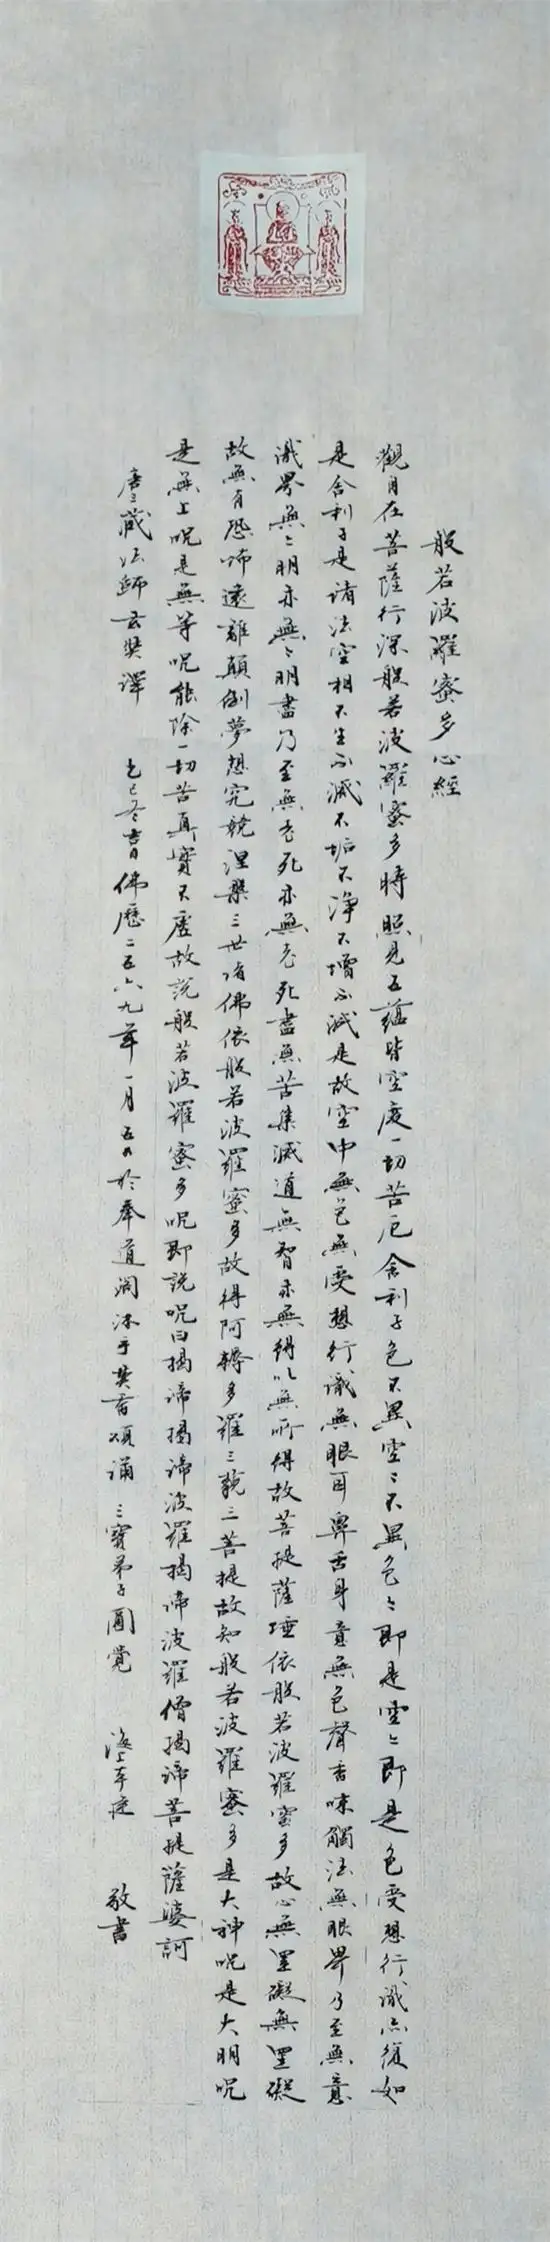 般若波羅蜜多心經
觀自在菩薩行深般若波羅蜜多時照見五蘊皆空度一切苦厄舍利子色不異空〻不異色〻即是空〻即是色受想行識亦復如
是舍利子是諸法空相不生不滅不垢不淨不增不減是故空中無色無受想行識無眼耳鼻舌身意無色聲香味觸法無眼界乃至無意
識界無〻明亦無〻明盡乃至無老死亦無老死盡無苦集滅道無智亦無得以無所得故菩提薩埵依般若波羅蜜多故心無罣礙無罣礙
故無有恐怖遠離顛倒夢想究竟涅槃三世諸佛依般若波羅蜜多故得阿耨多羅三藐三菩提故知般若波羅蜜多是大神呪是大明呪
是無上呪是無等呪能除一切苦真實不虛故說般若波羅蜜多呪即說呪曰揭諦揭諦波羅揭諦波羅僧揭諦菩提薩婆訶
唐三藏法師玄奘譯 乙巳冬吉月佛歷二五六九年一月五日於奉道閣沐手焚香頌誦 三寶弟子圓覺 海上 敬書